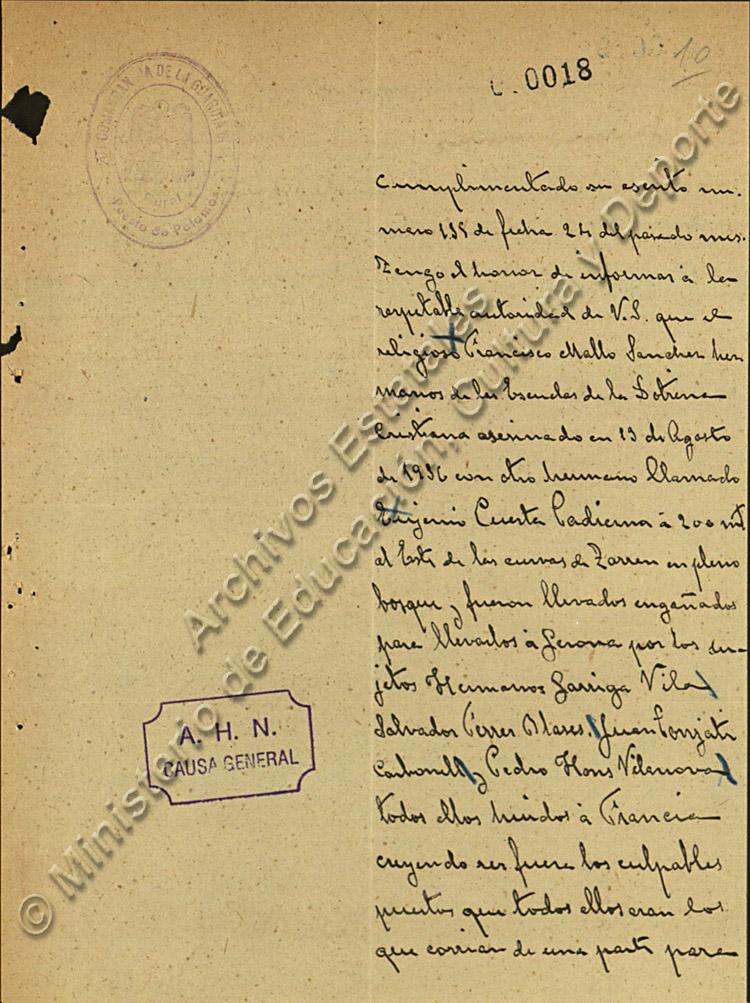 10
0018
COMANDANCIA DE LA GUARDIA
Rural
Puesto de Palamós
Cumplimentado su escrito nu-
mero 135 de fecha 24 del pasado mes.
Tengo el honor de informar à la
respetable autoridad de V.S. que el
religioso Francisco Mallo Sanchez her
manos de las Escuelas de la Dotrina
Cristiana asesinado en 13 de Agosto
de 1936 con otro hermano llamado
Eugenio Cuesta Padierna à 200 mt
al Este de las curvas de en pleno
bosque y fueron llevados engañados
para llevarlos à Gerona por los su-
jetos Hermanos Garriga Vila
Salvador Ferrer Juan
Carbonell y Pedro Vilanova
todos ellos huidos à Francia
creyendo ser fuera los culpables
puestos que todos ellos eran los
que corrian de una parte para
A. H. N.
CAUSA GENERAL
Archivos Estatales
© Ministerio de Educación, Cultura y Deporte